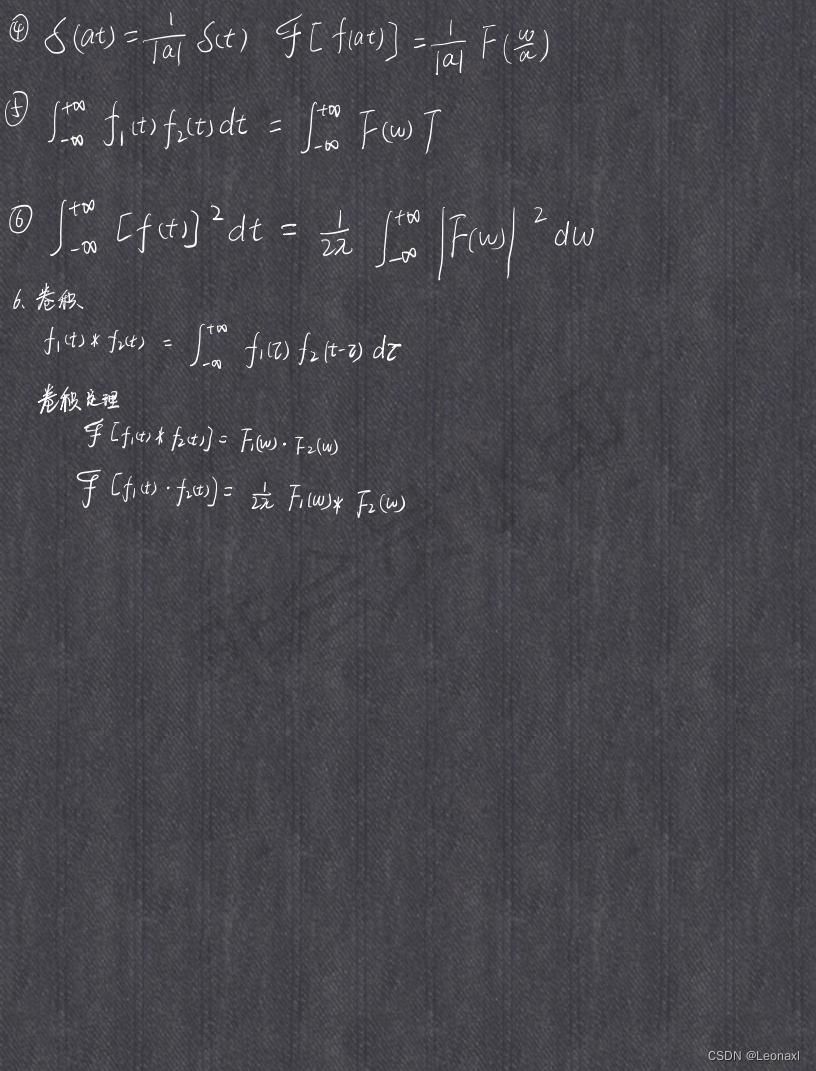 ④ δ(at) = 1/|a| δ(t) ℱ[f(at)] = 1/|a| F(ω/a)
⑤ ∫_{-∞}^{+∞} f₁(t) f₂(t) dt = ∫_{-∞}^{+∞} F(ω)
⑥ ∫_{-∞}^{+∞} [f(t)]² dt = 1/2π ∫_{-∞}^{+∞} |F(ω)|² dω
6. 卷积
f₁(t) * f₂(t) = ∫_{-∞}^{+∞} f₁(τ) f₂(t-τ) dτ
卷积定理
ℱ[f₁(t) * f₂(t)] = F₁(ω) · F₂(ω)
ℱ[f₁(t) · f₂(t)] = 1/2π F₁(ω) * F₂(ω)
CSDN @Leonaxl